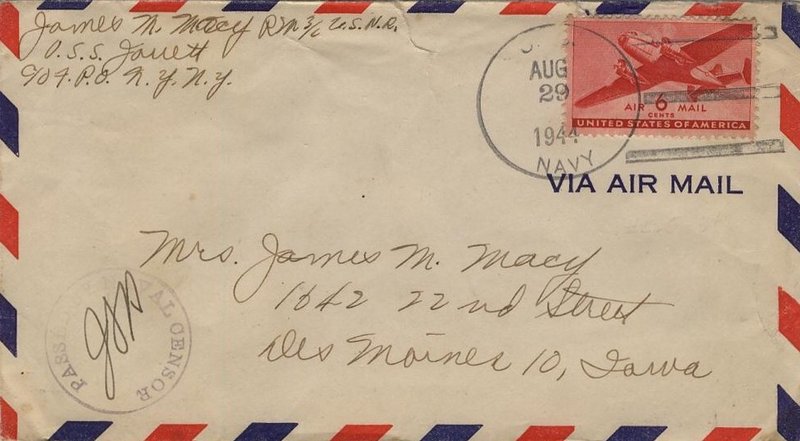 James M. Macy RM 3/c U.S.N.R.
U.S.S. Jouett
c/o F.P.O. N.Y. N.Y.
AUG
29
1944
NAVY
AIR 6 MAIL
CENTS
UNITED STATES OF AMERICA
VIA AIR MAIL
Mrs. James M. Macy
1642 22nd Street
Des Moines 10, Iowa
PASSED NAVAL CENSOR